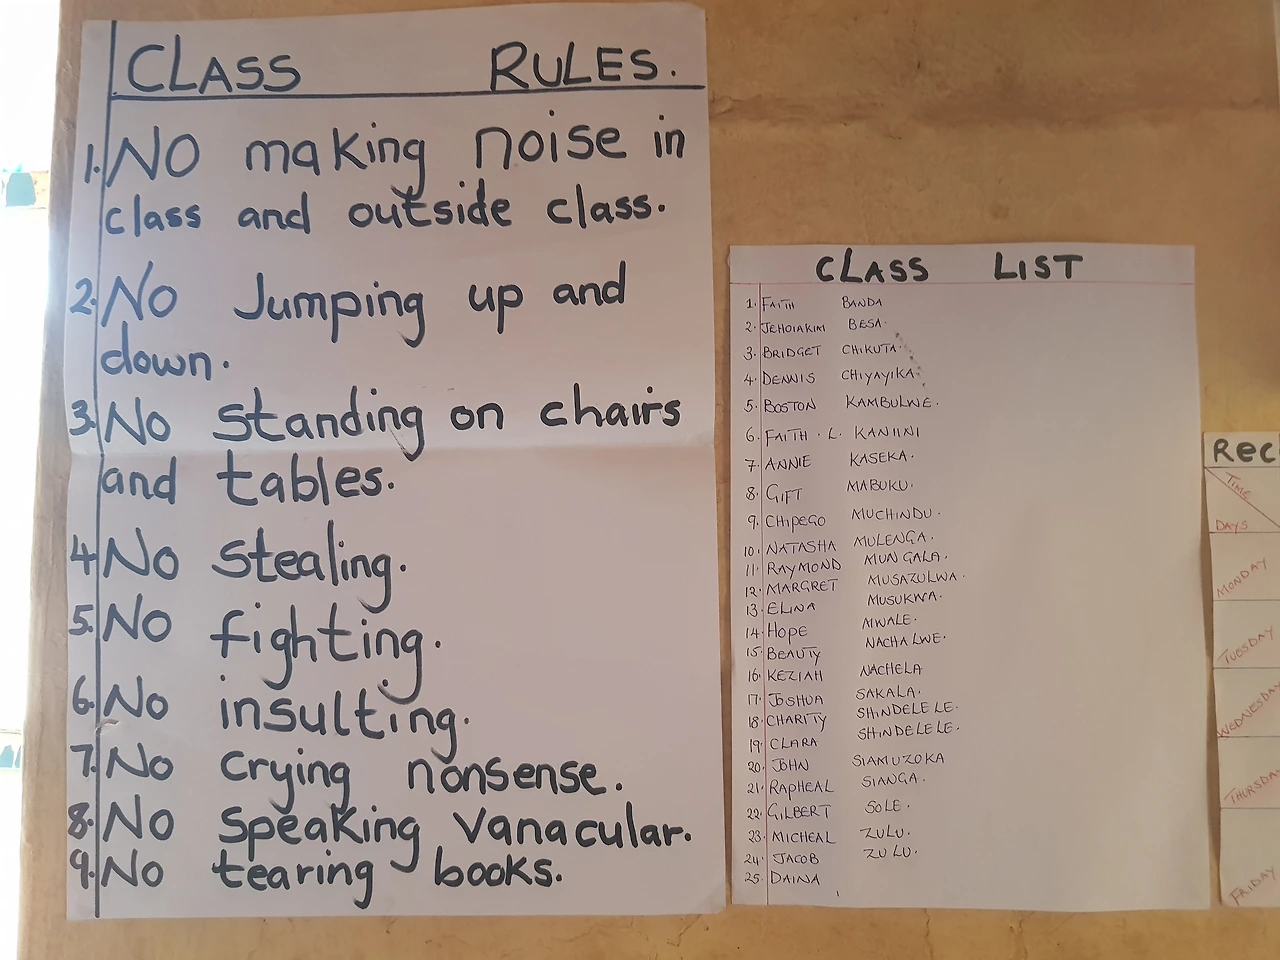 CLASS RULES.
1. NO making noise in
class and outside class.
2. No Jumping up and
down.
3. No standing on chairs
and tables.
4. No stealing.
5. No fighting.
6. No insulting.
7. No crying nonsense.
8. No speaking Vanacular.
9. No tearing books.
CLASS LIST
1. FAITH BANDA
2. JEHOIAKIM BESA.
3. BRIDGET CHIKUTA.
4. DENNIS CHIYAYIKA.
5. BOSTON KAMBULWE.
6. FAITH . L. KANIINI
7. ANNIE KASEKA.
8. GIFT MABUKU.
9. CHIPEGO MUCHINDU.
10. NATASHA MULENGA.
11. RAYMOND MUNGALA.
12. MARGRET MUSAZULWA.
13. ELINA MUSUKWA.
14. HOPE
15. BEAUTY NACHALWE.
16. KEZIAH NACHELA
17. JOSHUA SAKALA.
18. CHARITY SHINDELELE.
19. CLARA SHINDELELE.
20. JOHN SIAMUZOKA
21. RAPHEAL SIANGA.
22. GILBERT SOLE.
23. MICHEAL ZULU.
24. JACOB ZULU.
25. DAINA
REC
TIME
DAYS
MONDAY
TUESDAY
WEDNESDAY
THURSDAY
FRIDAY